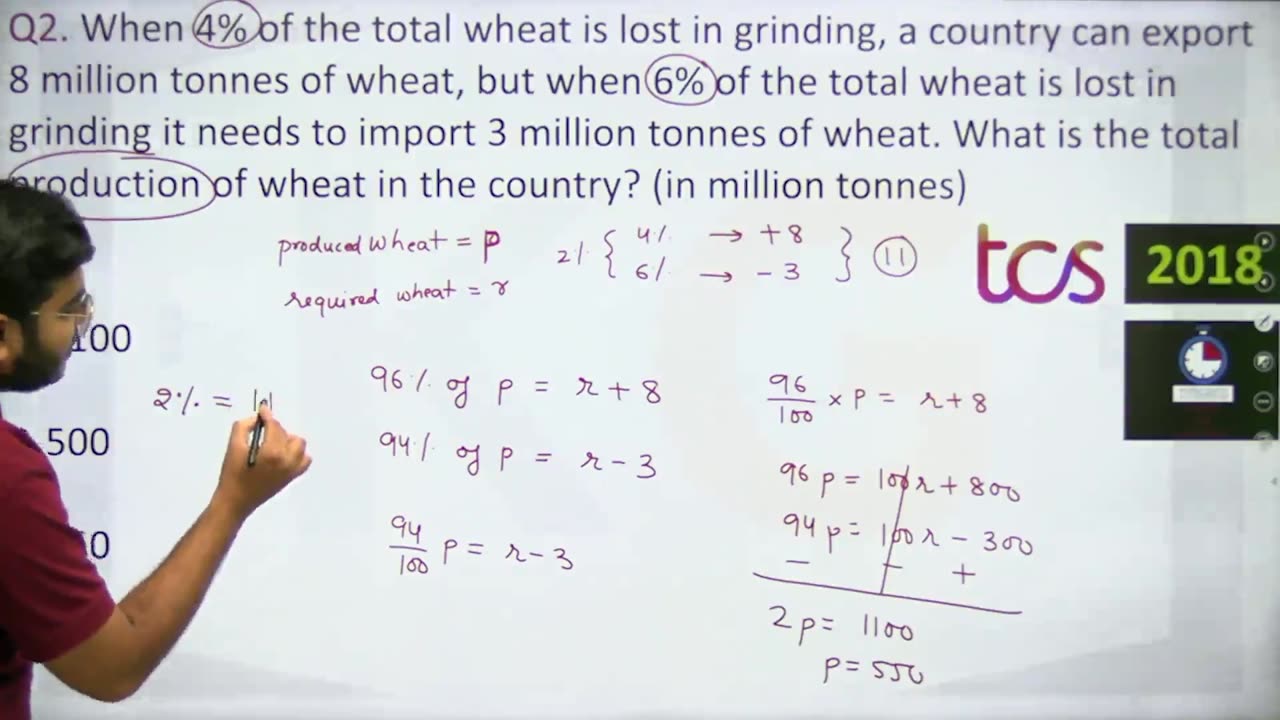 Q2. When 4% of the total wheat is lost in grinding, a country can export
8 million tonnes of wheat, but when 6% of the total wheat is lost in
grinding it needs to import 3 million tonnes of wheat. What is the total
production of wheat in the country? (in million tonnes)
produced wheat = p
required wheat = r
2% { 4% → +8
6% → -3 } 11
tcs
2018
100
500
0
2% = 11
96% of p = r + 8
94% of p = r - 3
94/100 p = r - 3
96/100 × p = r + 8
96 p = 100r + 800
94 p = 100r - 300
- - +
2p = 1100
p = 550